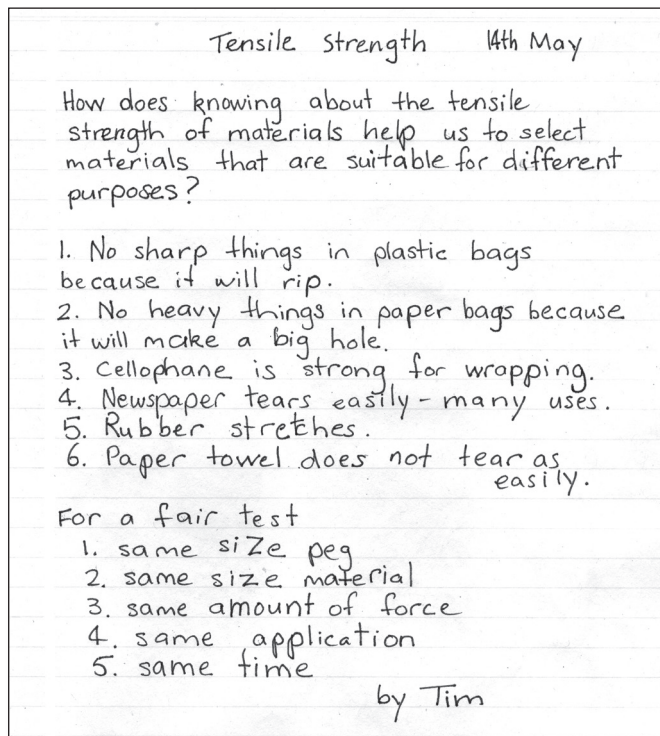 Tensile Strength 14th May
How does knowing about the tensile
strength of materials help us to select
materials that are suitable for different
purposes?
1. No sharp things in plastic bags
because it will rip.
2. No heavy things in paper bags because
it will make a big hole.
3. Cellophane is strong for wrapping.
4. Newspaper tears easily - many uses.
5. Rubber stretches.
6. Paper towel does not tear as
easily.
For a fair test
1. same size peg
2. same size material
3. same amount of force
4. same application
5. same time
by Tim